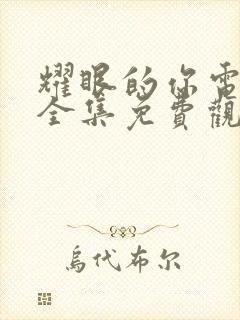 耀眼的你電
全集免費觀
烏代布尔